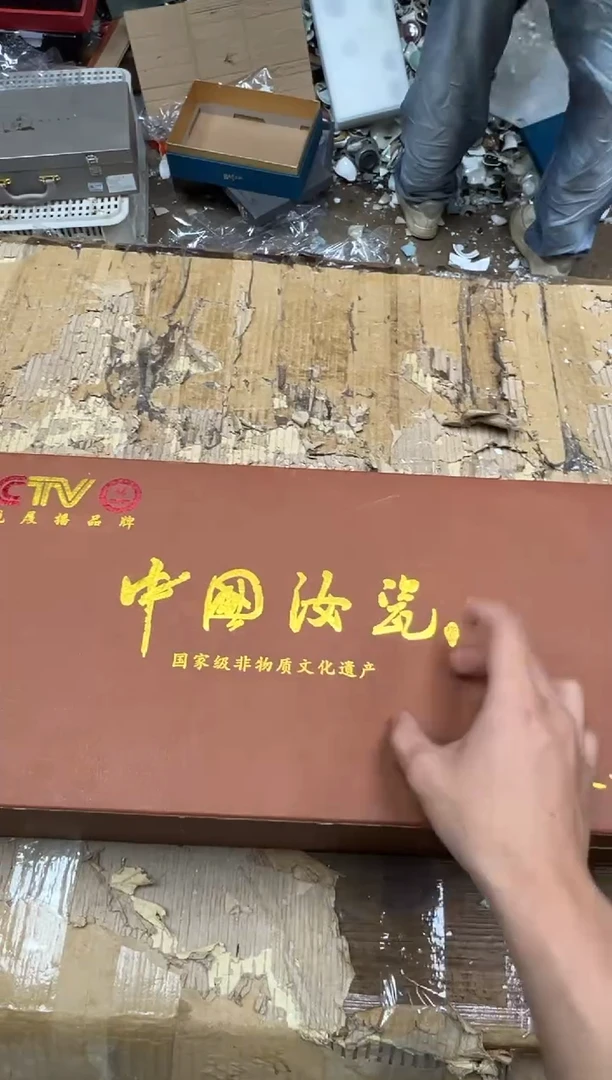 CCTV
展播品牌
中國汝瓷
国家级非物质文化遗产